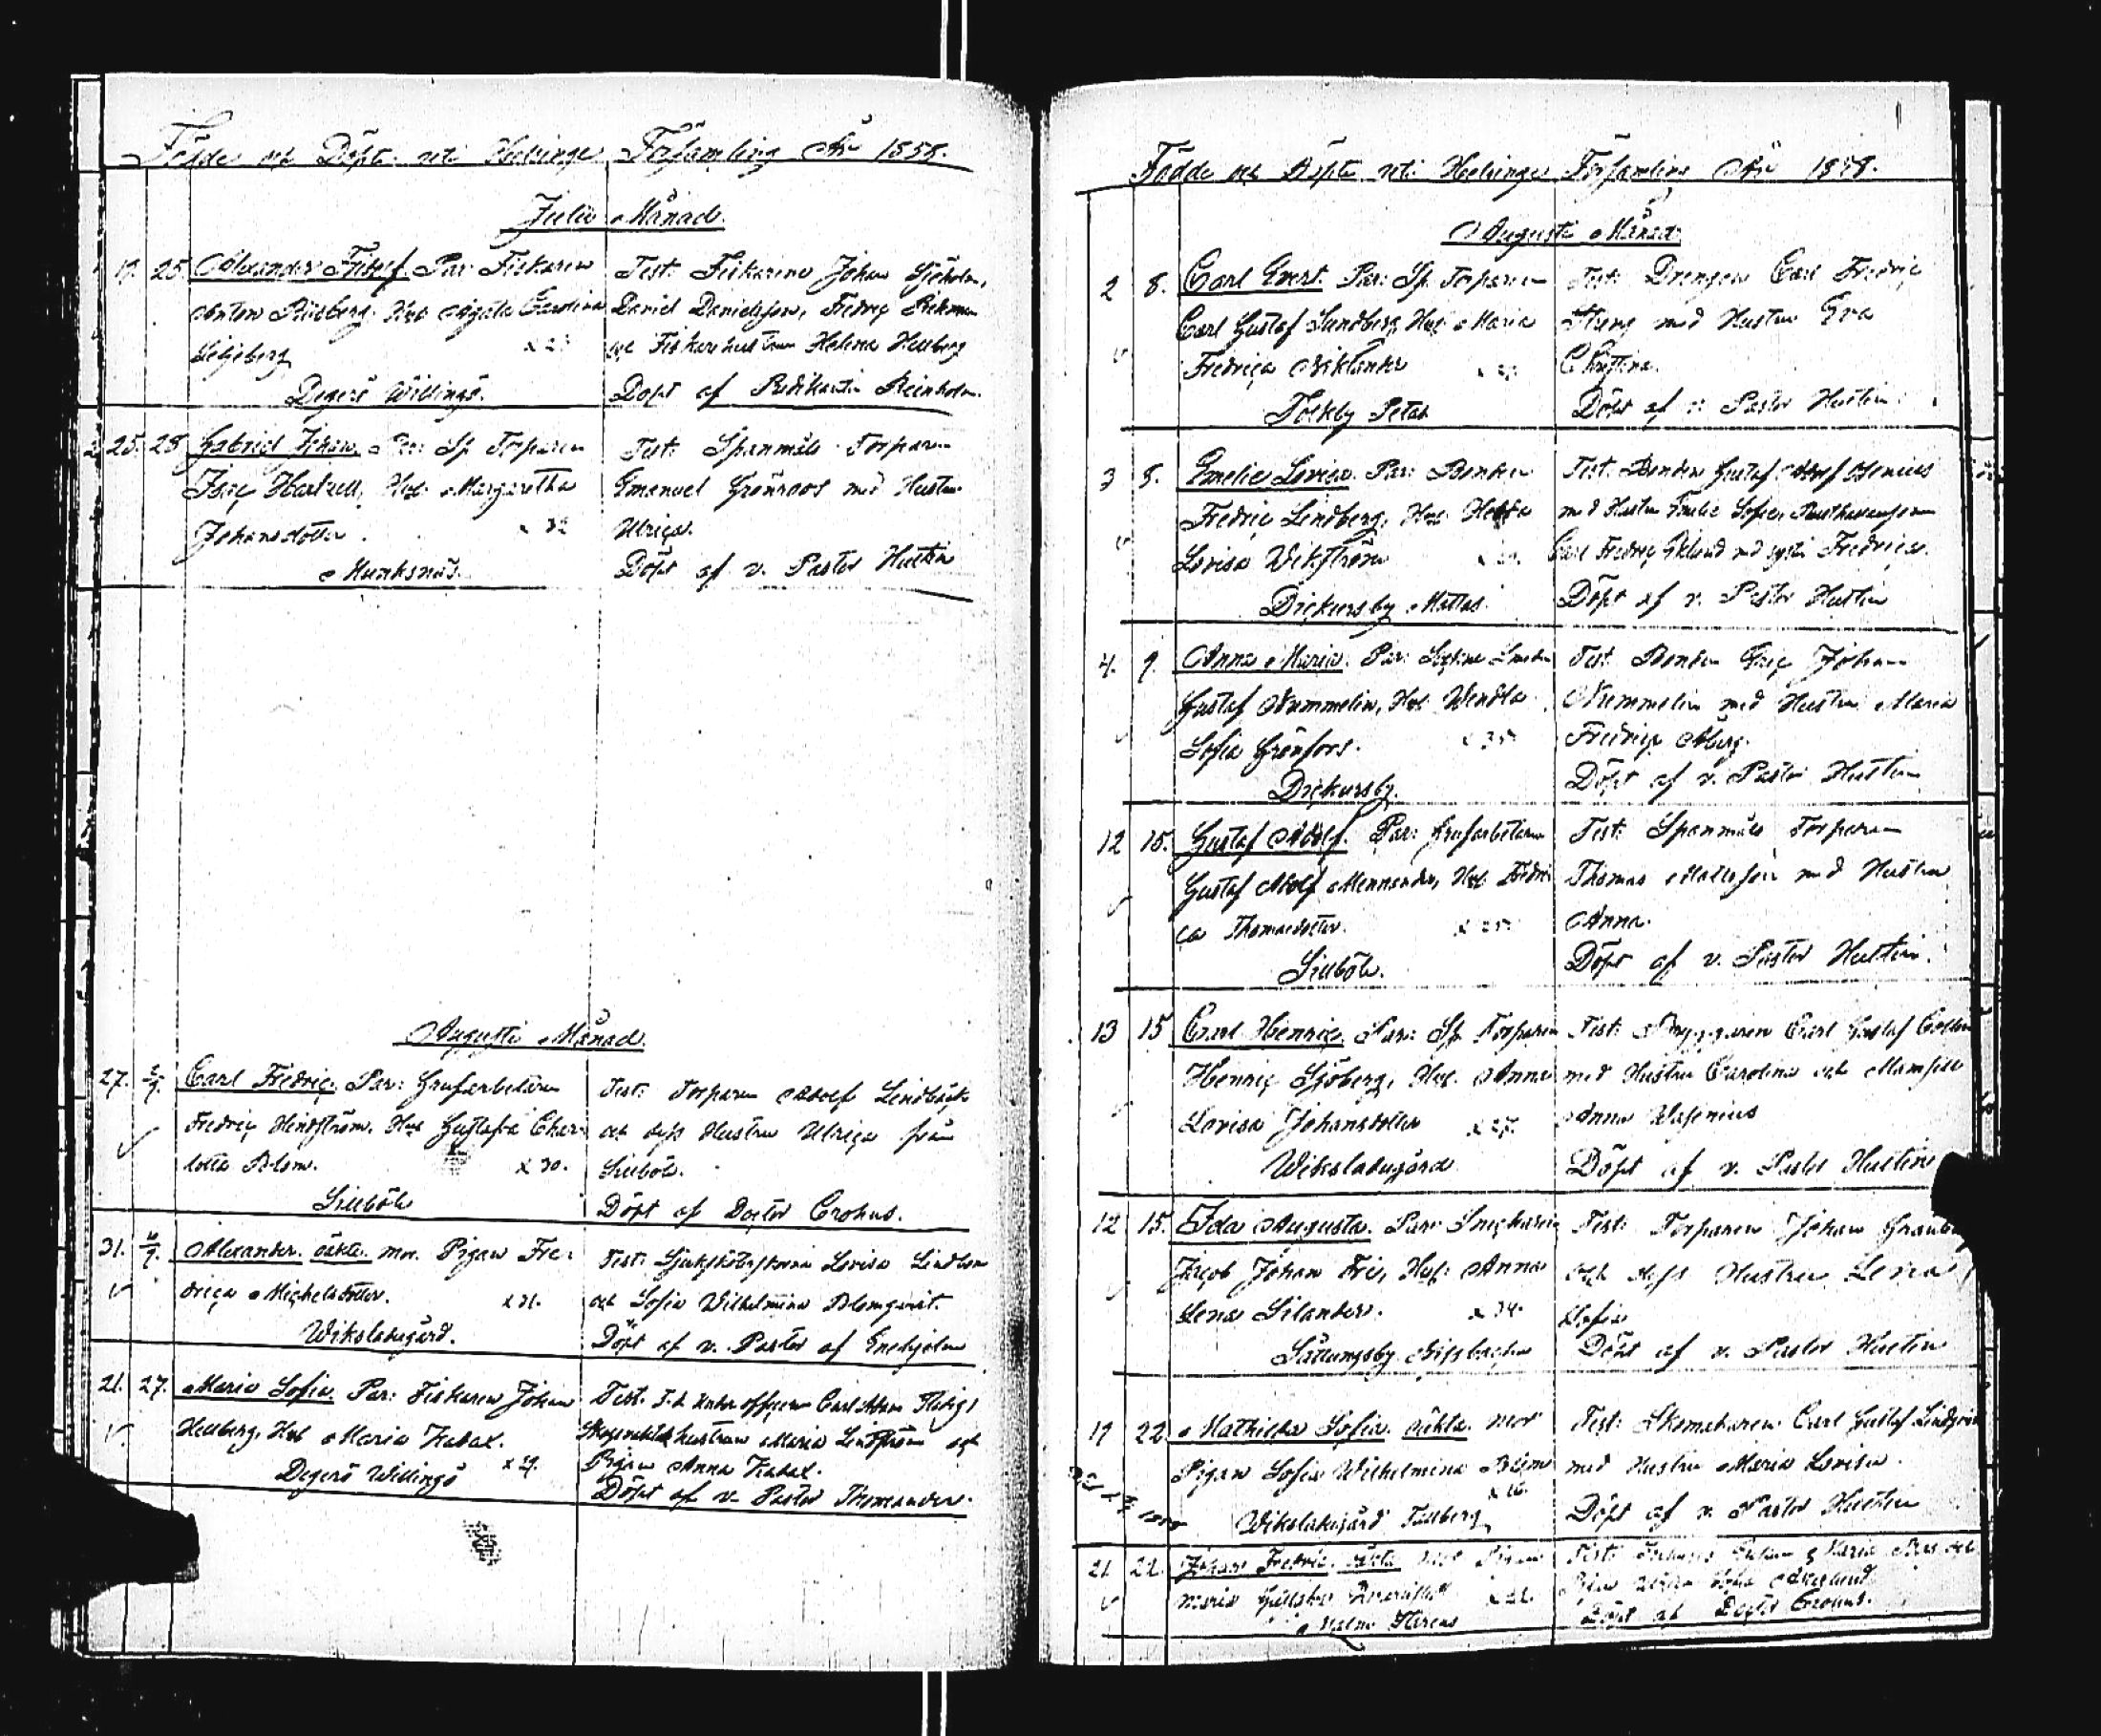 Födde och Döpte uti Helsinge Församling År 1858.
Julii Månad.
19. 25. Alexander Fritiof. Par: Fiskaren
Anton Risberg, Hust Agata Carolina
Liljeberg x 23
Degerö Willinge.
Test: Fiskarena Johan Sjöholm,
Daniel Danielsson, Fredric Bckman
och Fiskarehustrun Helena Hellberg
Döpt af Predikanten Reinholm.
25. 28 Gabriel Johan. Par: Sp Torparen
Isac Hartzell, Hust. Margaretha
Johansdotter. x 32
Munksnäs.
Test: Spanmåls Torparen
Emanuel Grönroos med Hustru
Ulrica.
Döpt af v. Pastor Hultin
Augusti Månad
27. Carl Fredric. Par: Grufarbetaren
Fredric Hindström, Hust Gustafva Char-
lotta Blom. x 30.
Sillböle
Test: Torparen Adolf Lindbäck
och dess Hustru Ulrica från
Sillböle.
Döpt af Doctor Crohns.
31. Alexander. oäkta. mor. Pigan Fre-
drica Michelsdotter. x 31.
Wikslakugård.
Test: Sjukskötherskorna Lovisa Lindblom
och Sofia Wilhelmina Blomqvist.
Döpt af v. Pastor af Enehjelm
21. 27. Maria Sofia. Par: Fiskaren Johan
Hellberg, Hust Maria Kabal. x 29.
Degerö Willinge
Test. Underofficeren Carl Adam
hustrun Maria Lindström och
Pigan Anna Kabal.
Döpt af v. Pastor Themander.
Födde och Döpte uti Helsinge Församling År 1858.
Augusti Månad.
2 8. Carl Evert. Par: Sp. Torparen
Carl Gustaf Sundberg, Hust Maria
Fredrica Wiklander
Tolkby Petas
Test: Drengen Carl Fredric
Streng med Hustru Eva
Christina.
Döpt af v. Pastor Hultin.
3 8. Emelie Lovisa. Par: Bonden
Fredric Lindberg, Hust. Hedda
Lovisa Wikström
Dickursby Mattas.
Test: Bonden Gustaf Adolf Alenius
med Hustru Emilie Sofia,
Carl Fredric Eklund med syster Fredrica.
Döpt af v. Pastor Hultin
4. 9. Anna Maria. Par: Sockne Smeden
Gustaf Nummelin, Hust Wendla
Sofia Grönfors. x 35
Dickursby.
Test: Bonden Eric Johan
Nummelin med Hustru Maria
Fredrica Åberg.
Döpt af v. Pastor Hultin
12 15. Gustaf Adolf. Par: Grufarbetaren
Gustaf Adolf Mennander, Hust. Fredri
ca Thomasdotter. x 25.
Sillböle.
Test: Spanmåls Torparen
Thomas Mattsson med Hustru
Anna.
Döpt af v. Pastor Hultin.
13 15 Carl Henric. Par: Sp Torparen
Henric Sjöberg, Hust. Anna
Lovisa Johansdotter x 27.
Wikslakugård
Test: Bryggaren Carl Gustaf
med Hustru Carolina och Mamsell
Anna Wasenius
Döpt af v. Pastor Hultin
12 15. Ida Augusta. Par: Snickaren
Jacob Johan Fri, Hust: Anna
Lena Silander. x 34.
Sättungsby Nissbacka
Test: Torparen Johan
och dess Hustru Lena
Sofia
Döpt af v. Pastor Hultin
19 22. Mathilda Sofia. oäkta. mor
Pigan Sofia Wilhelmina Blom
Wikslakugård Fallberg
Test: Skomakaren Carl Gustaf Lindqvist
med Hustru Maria Lovisa.
Döpt af v. Pastor Hultin
21 22. Johan Fredric. oäkta. mor Pigan
Maria Gustafva
Malms
Döpt af Doctor Crohns.